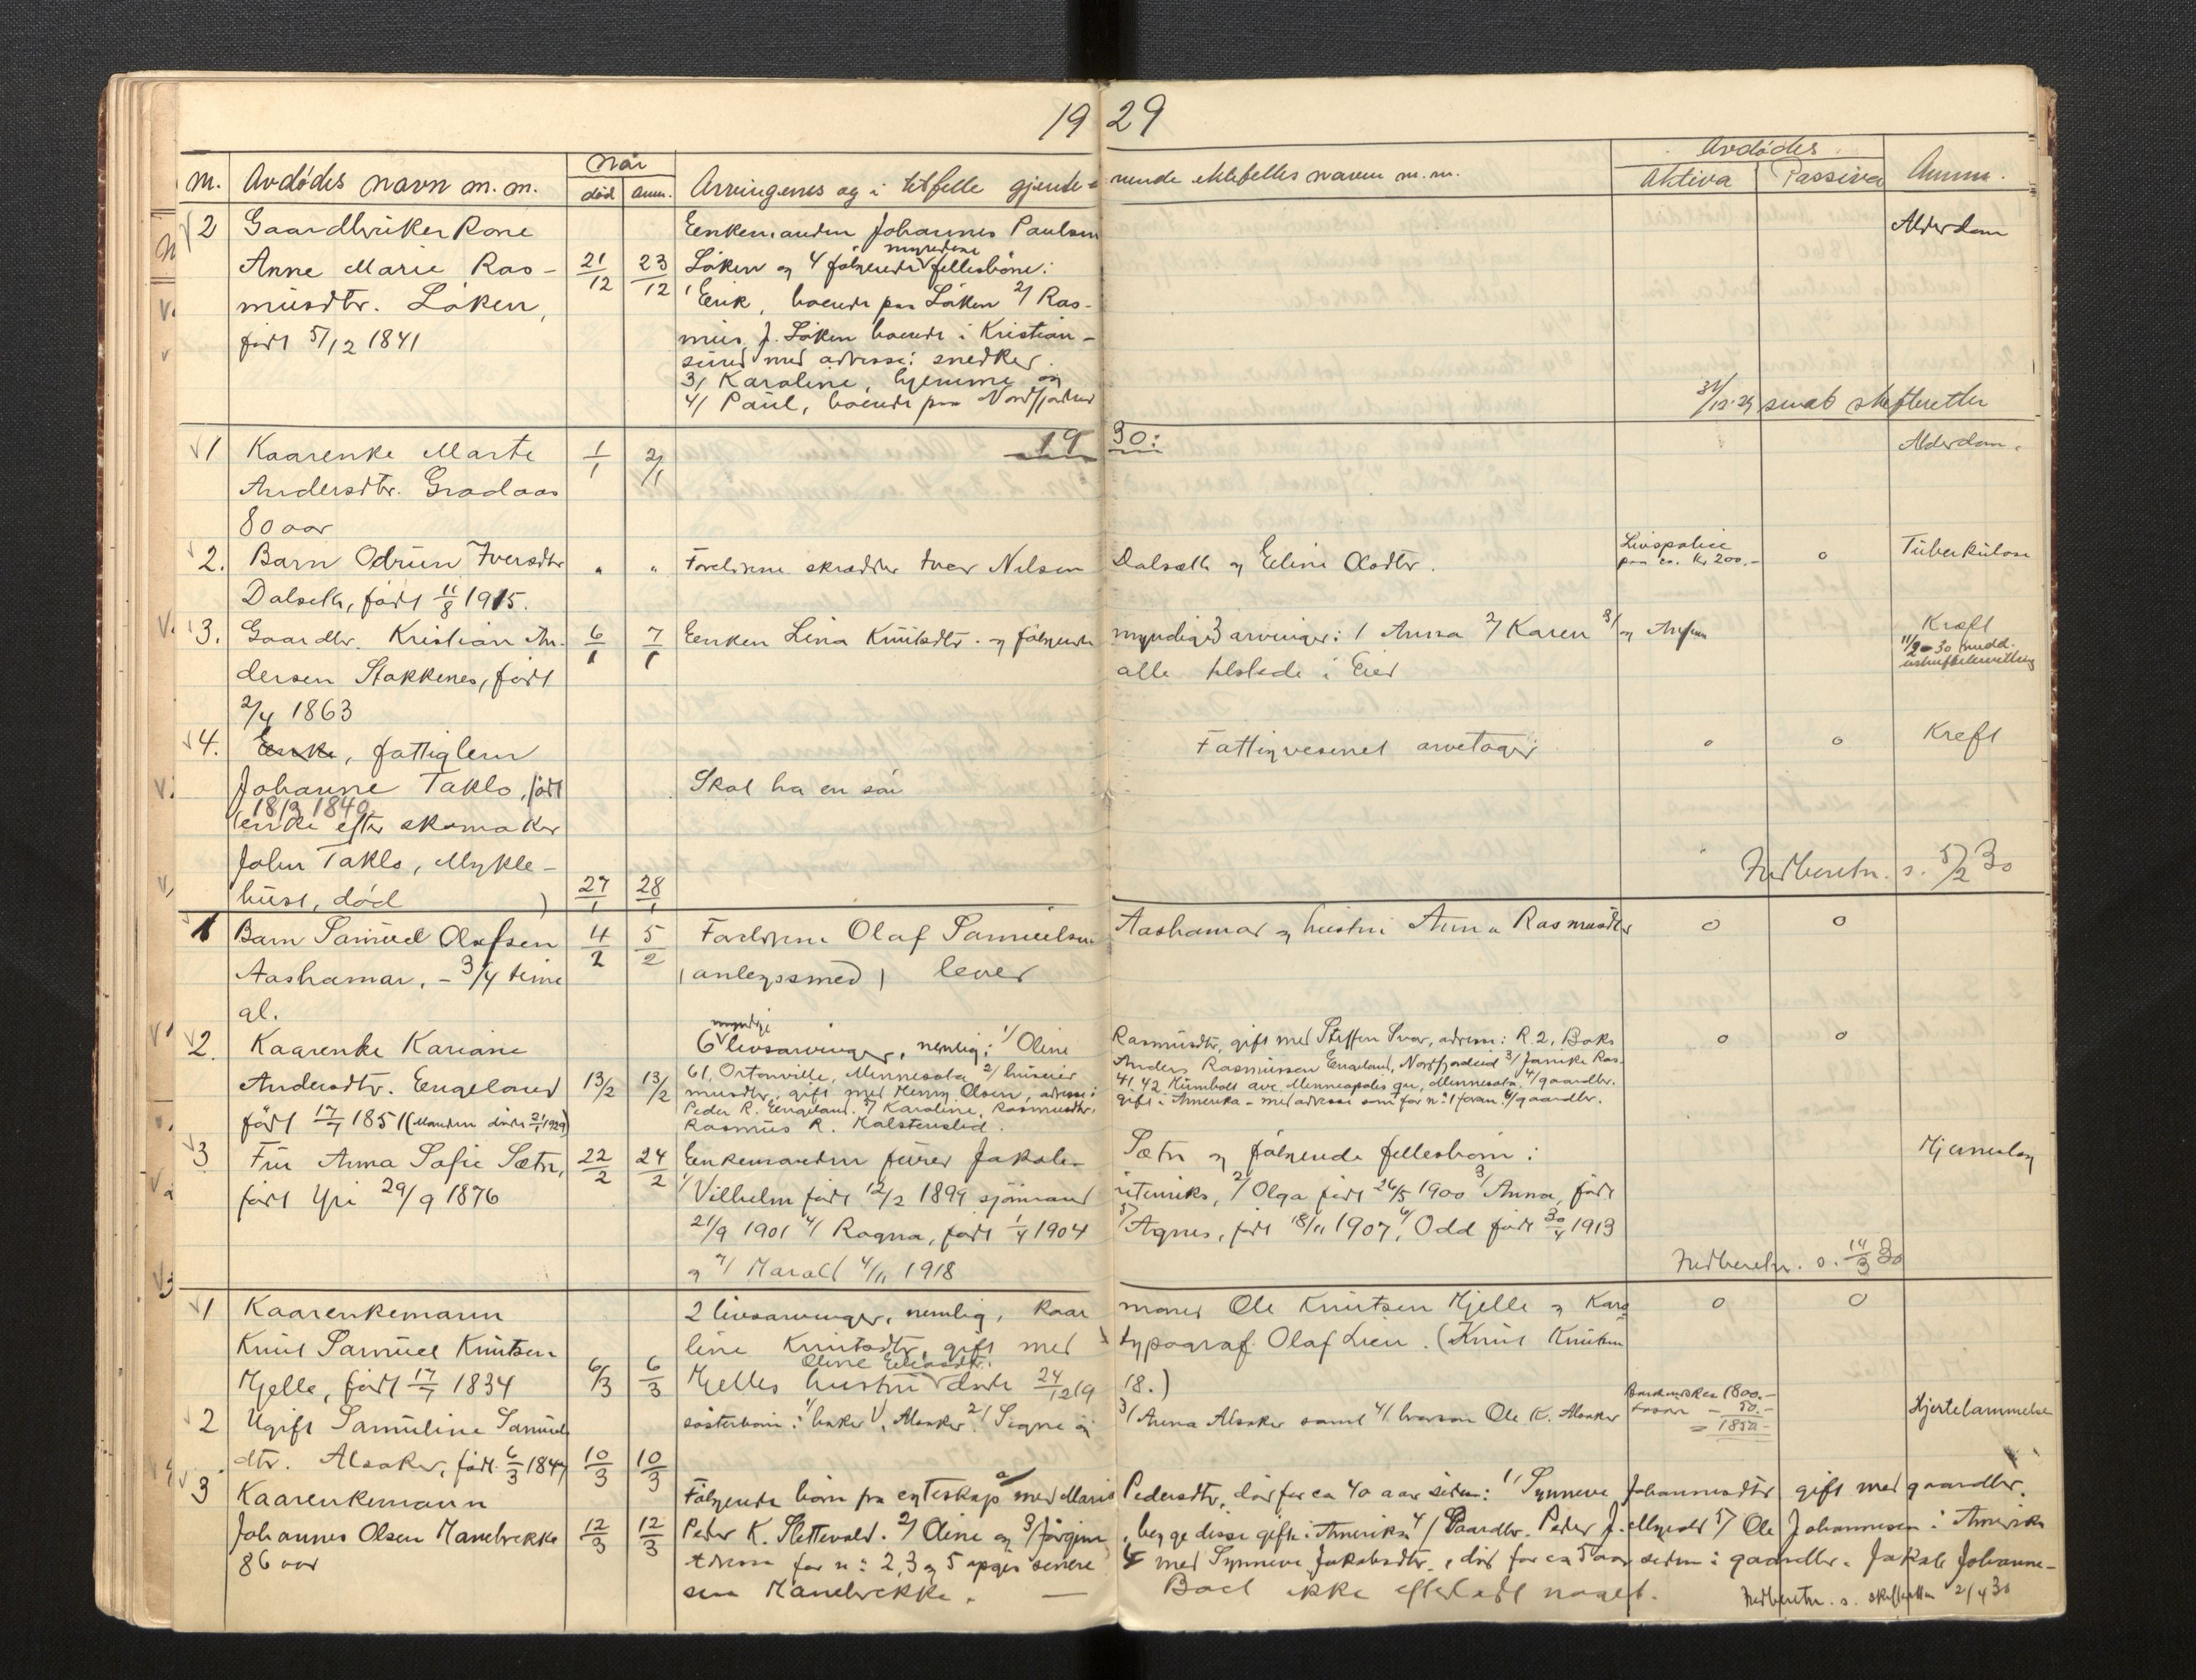 19 29
M. Avdødes navn m. m. Når død anm. Arvingenes og i tilfelle gjenle- vende ektefelles navn m. m. Avdødes Aktiva Passiva Anm.
2 Gaardbruker Kone Enkemanden Johannes Paulsen Alderdom
Anne Marie Ras- 21/12 23/12 Løken og 4 følgende myndige fellesbörn:
musdtr. Løken, 1/ Eirik, boende paa Løken 2/ Ras-
født 5/12 1841 mus J. Løken boende i Kristian-
sund med adresse: snedker.
3/ Karoline, hjemme og
4/ Paul, boende paa Nordfjordeid 31/12.29 sendt skifteretten
1930:
1 Kaarenke Marte 1/1 2/1 Alderdom.
Andersdtr. Gradaas
80 aar
2. Barn Odrun Iversdtr " " Foreldrene skrædder Iver Nilsen Dalseth og Eline Olsdtr. Livspolice paa ca. kr 200.- 0 Tuberkulose
Dalseth, født 11/8 1915.
3. Gaardbr. Kristian An- 6/1 7/1 Enken Lina Knutsdtr. og følgende myndige 3 arvinger: 1 Anna 2/ Karen 3/ og Kreft
dersen Stokkenes, født alle tilstede i Eid 11/2-30 medd.
2/4 1863
4. Enke, fattiglem Fattigvesenet arvetager 0 0 Kreft
Johanne Taklo, født Skal ha en søn
18/3 1840
(enke efter skomaker
John Taklo, Mykle-
bust, død ) 27/1 28/1 Indberetn. s. 5/2 30
1 Barn Samuel Olafsen 4/2 5/2 Foreldrene Olaf Samuelsen Aashamar og hustru Anna Rasmusdtr 0 0
Aashamar, - 3/4 time (anlegssmed) lever
gl.
2. Kaarenke Kariane 6 myndige livsarvinger, nemlig: 1/ Oline Rasmusdtr, gift med Steffen Svor, adresse: R. 2, Boks 0 0
Andersdtr. Engeland 13/2 13/2 61, Ortonville, Minnesota 2/ huseier Anders Rasmussen Engeland, Nordfjordeid 3/ Janike Ras-
født 17/7 1851 (Manden døde 21/1 1929) musdtr, gift med Henry Olsen, adresse: 4142 Humbolt ave. Minneapolis Minnesota. 4/ gaardbr.
Peder R. Engeland. 5/ Karoline Rasmusdtr, gift i Amerika - med adresse som for n: 1 foran. 6/ gaardbr.
Rasmus R. Kalstenslid.
3 Fru Anna Sofie Sætre, 22/2 24/2 Enkemanden furer Jakob Sætre og følgende fellesbörn: Hjerneslag
født Yri 29/9 1876 1/ Vilhelm født 12/2 1899 sjømand utenriks, 2/ Olga født 26/5 1900 3/ Anna, født
21/9 1901 4/ Ragna, født 1/4 1904 5/ Agnes, født 18/11 1907, 6/ Odd født 30/4 1913
og 7/ Harald 4/11 1918 Indberetn. s. 14/3 30
1 Kaarenkemann 2 livsarvinger, nemlig, kaar mand Ole Knutsen Hjelle og Karo 0 0
Knut Samuel Knutsen line Knutsdtr, gift med typograf Olaf Lien. (Knut Knutsen
Hjelle, født 17/7 1834 6/3 6/3 Hjelles hustru Oline Eliasdtr. døde 24/12 19 18.)
2 Ugift Samuline Samuels søsterbörn: 1/ baker Alsaker 2/ Signe og 3/ Anna Alsaker samt 4/ Ole K. Alsaker Bankindsken 1800.- 50.- = 1850.- Hjertelammelse
dtr. Alsaker, født 6/3 1847 10/3 10/3
3 Kaarenkemann Følgende börn fra egteskap med Maris Pedersdtr, død for ca 40 aar siden: 1/ Synneve Johannesdtr gift med gaardbr.
Johannes Olsen Maurbrekke 12/3 12/3 Peder K. Slettevold. 2/ Oline og 3/ Jørgine, begge disse gifte i Amerika 4/ Gaardbr. Peder J. 5/ Ole Johannesen i Amerika
86 aar Adresse for n: 2, 3 og 5 opgis senere med Synneve Jakobsdtr, død for ca 5 aar siden: gaardbr. Jakob Johanne-
sen Maurbrekke. — Boet ikke efterlatt noget. Indberetn. s. skifteretten 2/4 30